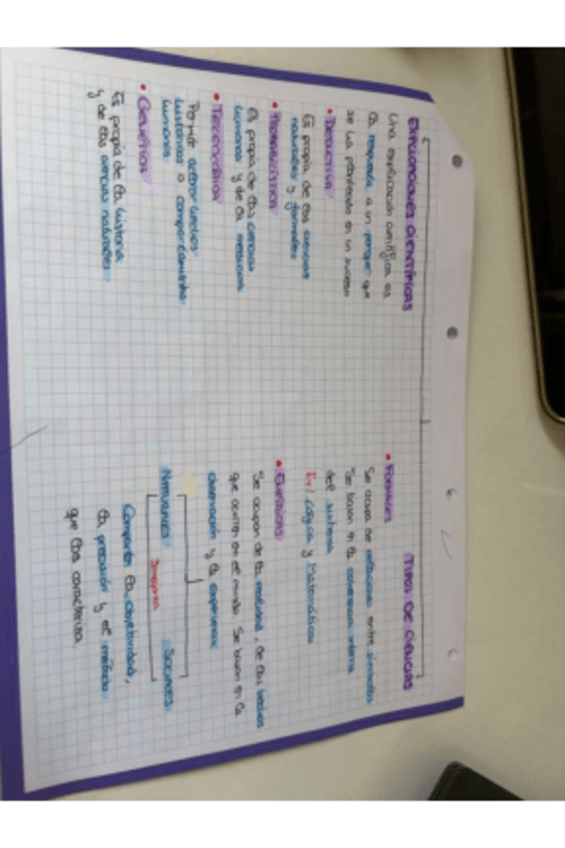 EXPLICACIONES CIENTÍFICAS
Una explicación científica es
la respuesta a un porque que
se ha planteado en un suceso
• DEDUCTIVA
Es propia de las ciencias
naturales y formales
• PROBABILÍSTICA
Es propia de las ciencias
humanas y de la medicina
• TELEOLÓGICA
Permite aclarar hechos
históricos o comportamientos
humanos
• GENÉTICA
Es propia de la historia
y de las ciencias naturales
TIPOS DE CIENCIAS
• FORMALES
Se ocupa de relaciones entre símbolos
Se basan en la coherencia interna
del sistema
Ex/ Lógica y Matemáticas
• EMPÍRICAS
Se ocupan de la realidad, de los hechos
que ocurren en el mundo. Se basan en la
observación y la experiencia
NATURALES
SOCIALES
Comparten la objetividad,
la precisión y el método
que las caracteriza.